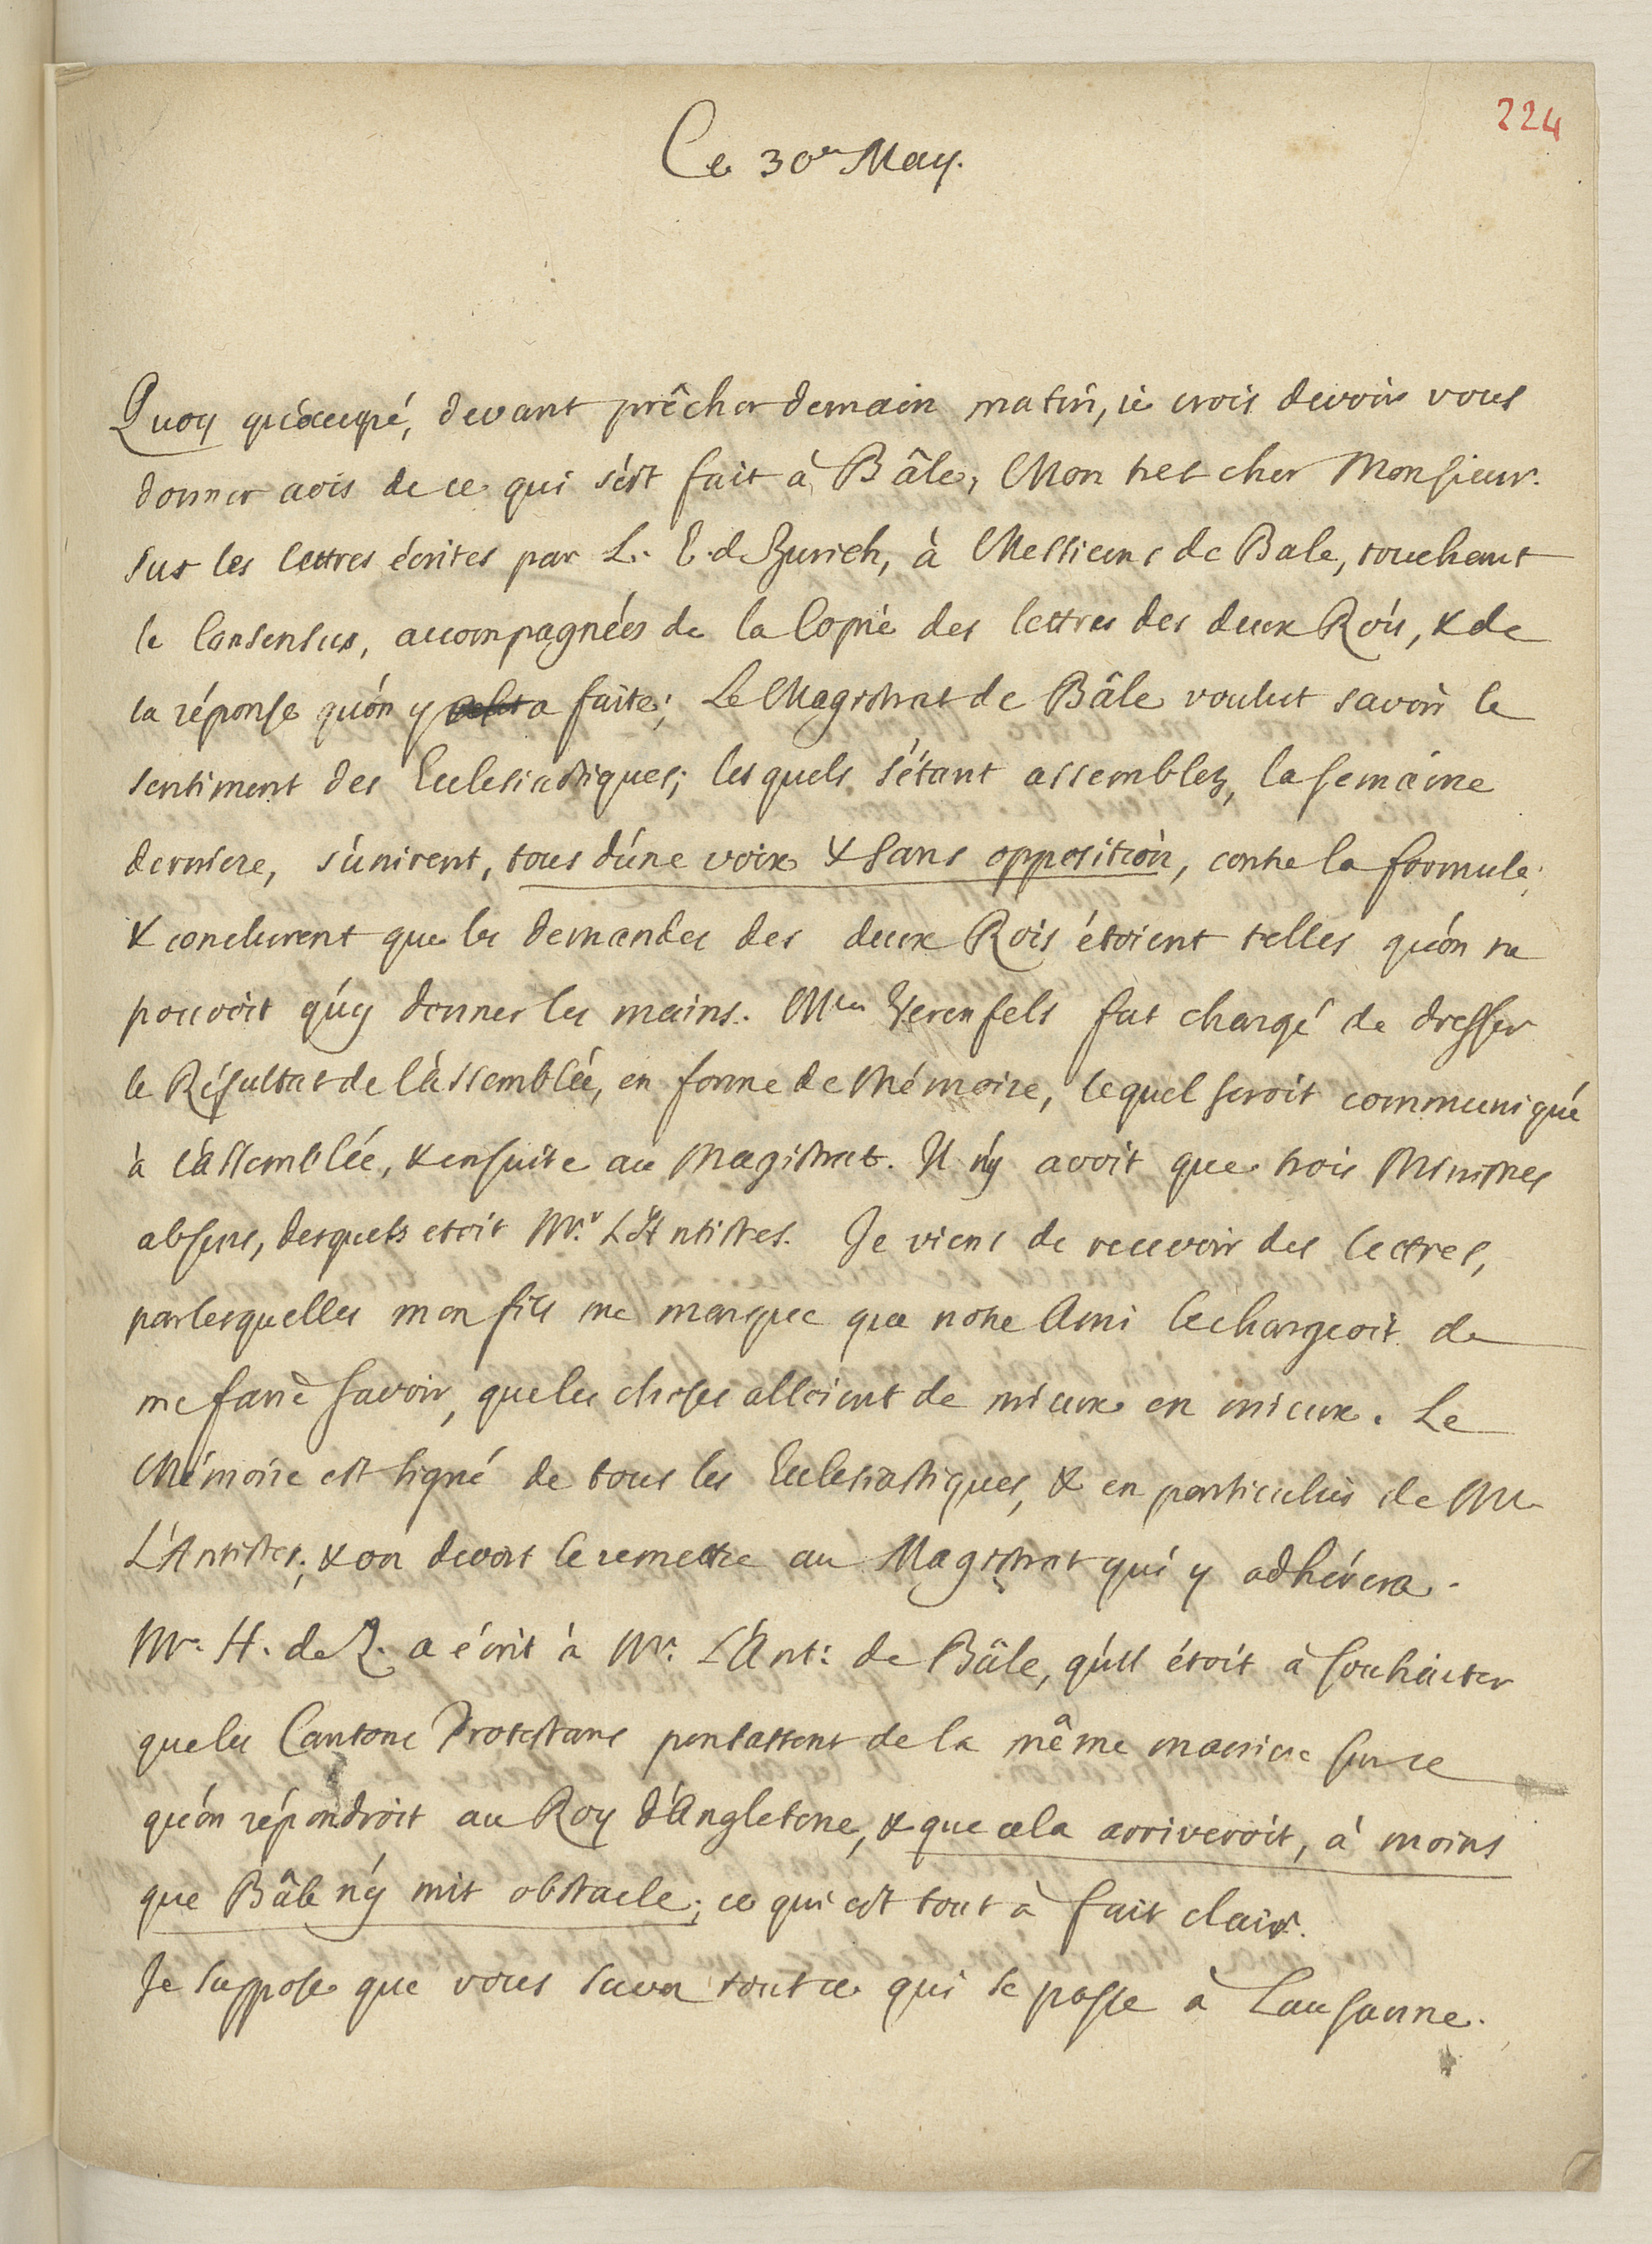 224
Ce 30e May.
Quoy qu'occupé, devant prêcher demain matin, ie crois devoir vous
donner avis de ce qui s'est fait à Bâle, Mon tres cher Monsieur.
Sur les lettres écrites par L. E. de Zurich, à Messieurs de Bale, touchant
le Consensus, accompagnées de la Copie des lettres des deux Rois, & de
la réponse qu'on y a faite; Le Magistrat de Bâle voulut savoir le
sentiment des Ecclesiastiques; lesquels s'étant assemblez, la semaine
derniere, s'unirent, tous d'une voix & sans opposition, contre la formule;
& conclurent que les demandes des deux Rois étoient telles qu'on ne
pouvoit qu'y donner les mains. Mr Werenfels fut chargé de dresser
le Résultat de l'assemblée, en forme de Mémoire, lequel seroit communiqué
à l'assemblée, & ensuite au Magistrat. Il n'y avoit que trois Ministres
absens, desquels etoit Mr. L'Antistes. Je viens de recevoir des lettres,
par lesquelles mon fils me marque que notre Ami le chargeoit de
me faire savoir, que les choses alloient de mieux en mieux. Le
Mémoire est signé de tous les Ecclesiastiques, & en particulier de Mr
L'Antistes; & on devoit le remettre au Magistrat qui y adhérera.
Mr. H. de Z. a écrit à Mr. L'Ant: de Bâle, qu'il étoit à souhaiter
que les Cantons Protestans pensassent de la même maniere sur ce
qu'on répondroit au Roy d'Angleterre, & que cela arriveroit, à moins
que Bâle n'y mit obstacle; ce qui est tout à fait clair.
Je suppose que vous savez tout ce qui se passe à Lausanne.